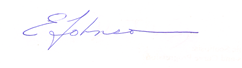 E Johnson